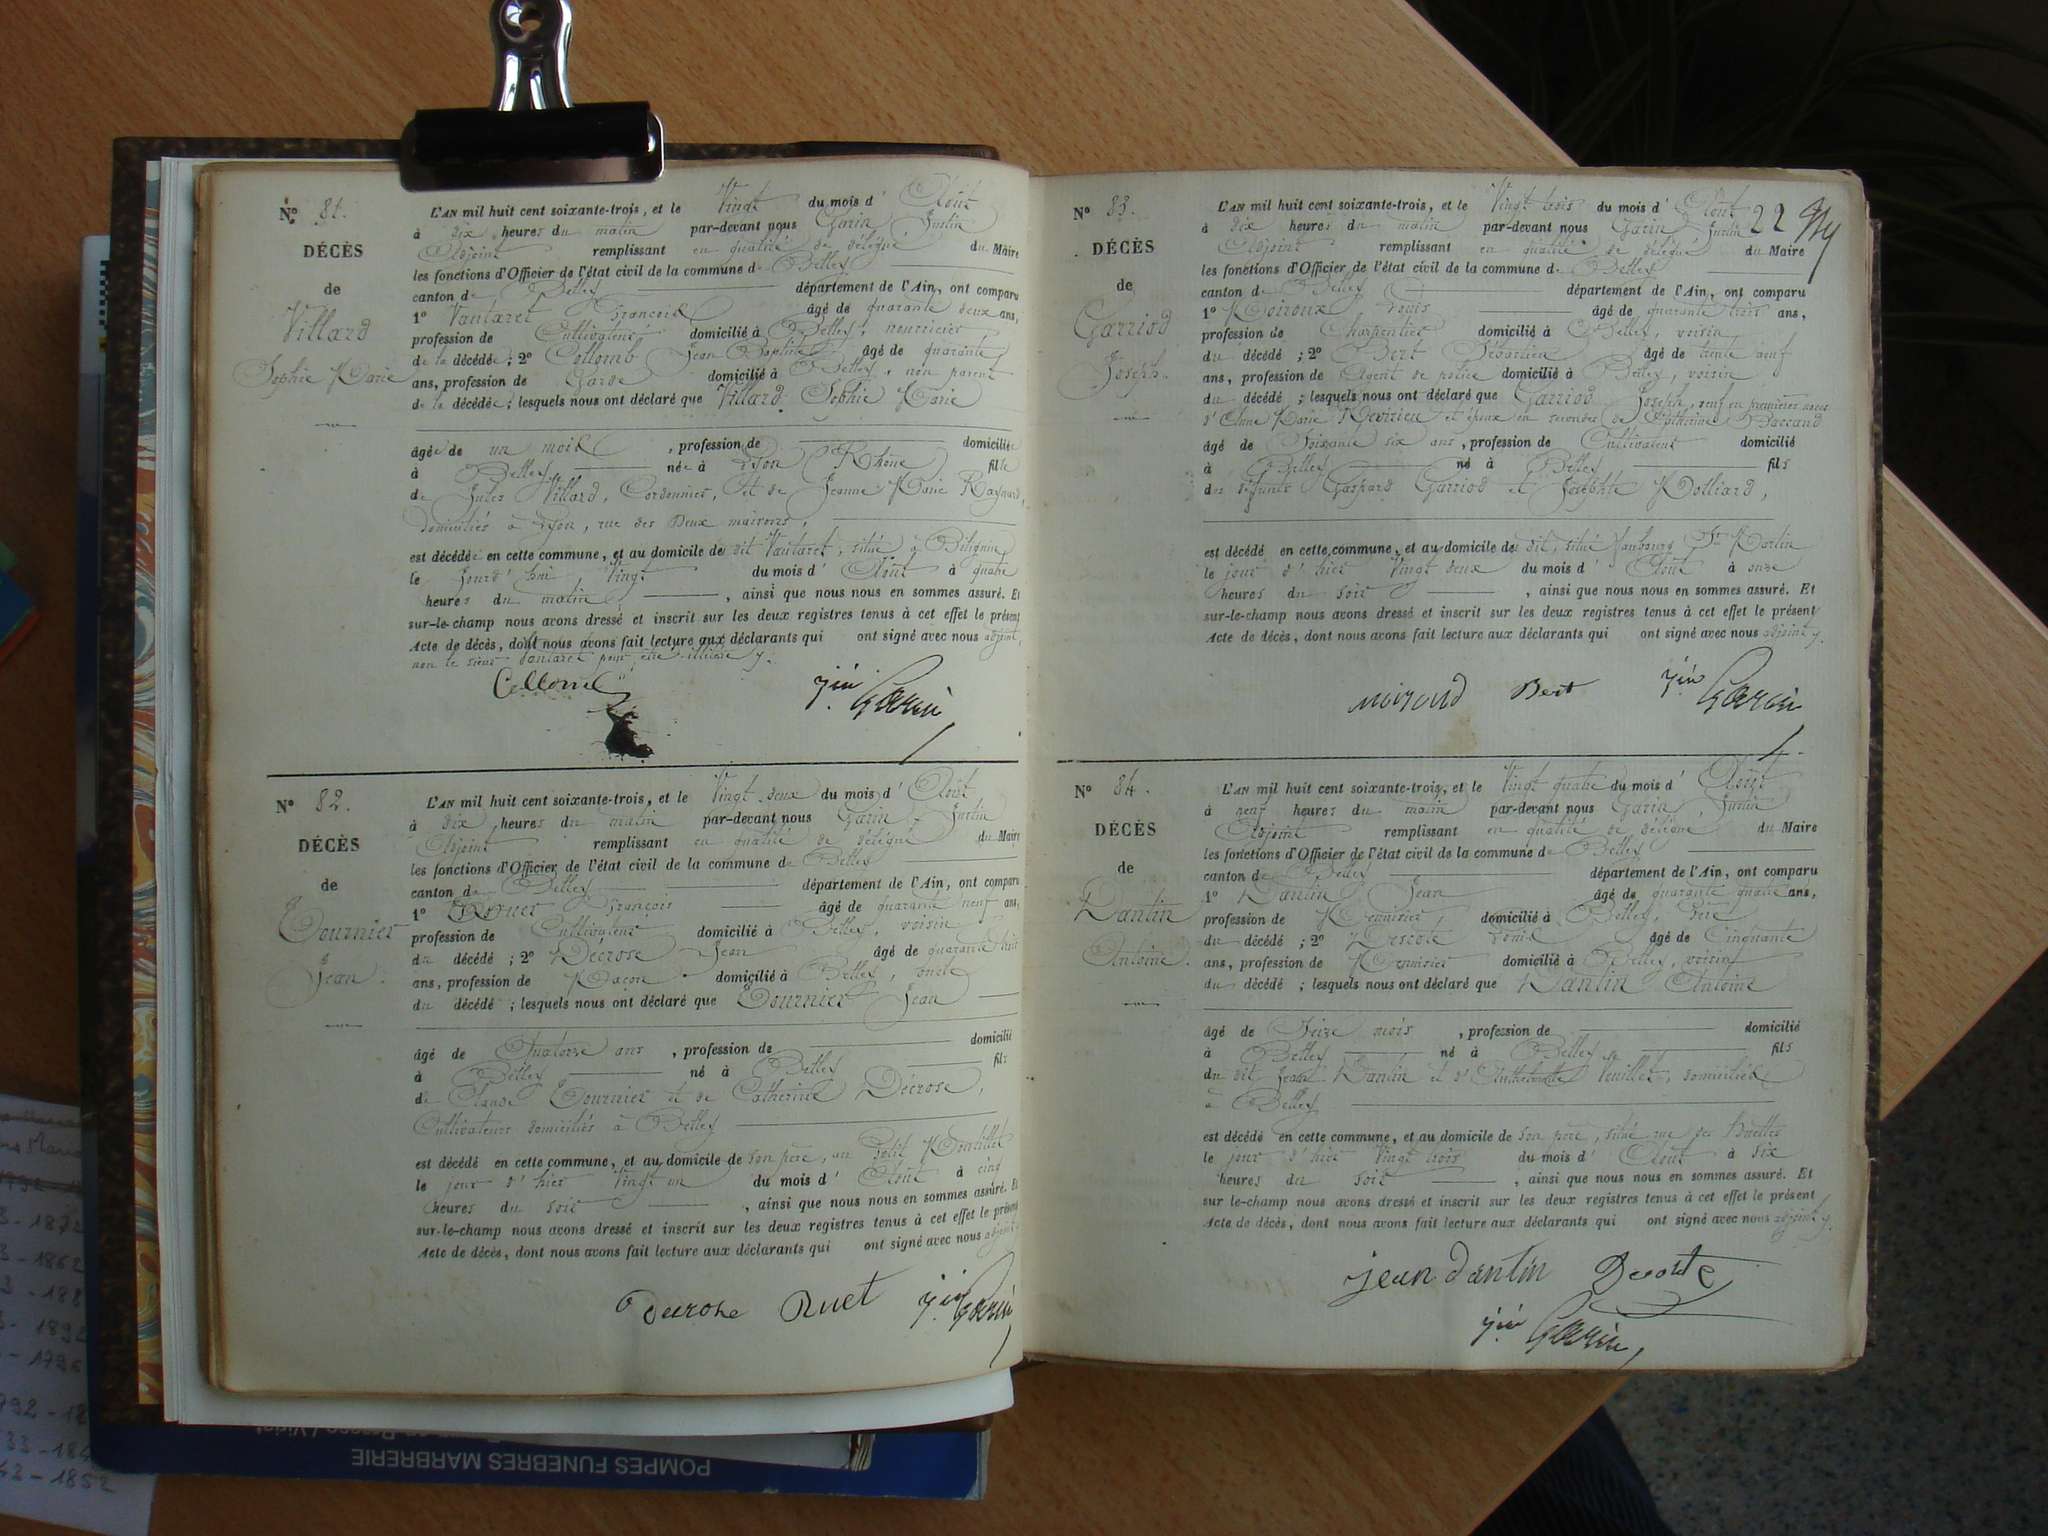 N° 81.
DÉCÈS
de
Villard
Sophie Marie
L'AN mil huit cent soixante-trois, et le Vingt du mois d' Août
à dix heures du matin par-devant nous Garin Justin
Adjoint remplissant en qualité de délégué du Maire
les fonctions d'Officier de l'état civil de la commune de Belley
canton de Belley département de l'Ain, ont comparu
1° Vantaret François âgé de quarante deux ans,
profession de Cultivateur domicilié à Belley, nourricier
de la décédée; 2° Collomb Jean Baptiste âgé de quarante
ans, profession de Garde domicilié à Belley, non parent
de la décédée; lesquels nous ont déclaré que Villard Sophie Marie
âgée de un mois, profession de domiciliée
à Belley née à Lyon (Rhône) fille
de Jules Villard, Cordonnier, et de Jeanne Marie Raynard,
domiciliés à Lyon, rue des Deux maisons,
est décédée en cette commune, et au domicile de dit Vantaret, situé à Billignin
le jourd'hui Vingt du mois d' Août à quatre
heures du matin, ainsi que nous nous en sommes assuré. Et
sur-le-champ nous avons dressé et inscrit sur les deux registres tenus à cet effet le présent
Acte de décès, dont nous avons fait lecture aux déclarants qui ont signé avec nous adjoint,
non le sieur Vantaret pour être illitéré
Collomb
jin Garin
N° 82.
DÉCÈS
de
Tournier
Jean
L'AN mil huit cent soixante-trois, et le Vingt deux du mois d' Août
à dix heures du matin par-devant nous Garin Justin
Adjoint remplissant en qualité de délégué du Maire
les fonctions d'Officier de l'état civil de la commune de Belley
canton de Belley département de l'Ain, ont comparu
1° François âgé de quarante neuf ans,
profession de Cultivateur domicilié à Belley, voisin
du décédé; 2° Décrose Jean âgé de quarante huit
ans, profession de Maçon domicilié à Belley, oncle
du décédé; lesquels nous ont déclaré que Tournier Jean
âgé de Quatorze ans, profession de domicilié
à Belley né à Belley fils
de Claude Tournier et de Catherine Décrose,
Cultivateurs domiciliés à Belley
est décédé en cette commune, et au domicile de son père, au Petit
le jour d'hier Vingt un du mois d' Août à cinq
heures du soir, ainsi que nous nous en sommes assuré. Et
sur-le-champ nous avons dressé et inscrit sur les deux registres tenus à cet effet le présent
Acte de décès, dont nous avons fait lecture aux déclarants qui ont signé avec nous adjoint
Decrose Ruet jin Garin
22
N° 83.
DÉCÈS
de
Garriod
Joseph
L'AN mil huit cent soixante-trois, et le Vingt trois du mois d' Août
à dix heures du matin par-devant nous Garin Justin
Adjoint remplissant en qualité de délégué du Maire
les fonctions d'Officier de l'état civil de la commune de Belley
canton de Belley département de l'Ain, ont comparu
1° Moiroux Louis âgé de quarante trois ans,
profession de Charpentier domicilié à Belley, voisin
du décédé; 2° Bert Sébastien âgé de trente neuf
ans, profession de Agent de police domicilié à Belley, voisin
du décédé; lesquels nous ont déclaré que Garriod Joseph, veuf en premières noces
d'Anne Marie et époux en secondes de Catherine Baccand
âgé de Soixante six ans, profession de Cultivateur domicilié
à Belley né à Belley fils
des défunts Gaspard Garriod et Josephte Molliard,
est décédé en cette commune, et au domicile de dit, situé faubourg St Martin
le jour d'hier Vingt deux du mois d' Août à onze
heures du soir, ainsi que nous nous en sommes assuré. Et
sur-le-champ nous avons dressé et inscrit sur les deux registres tenus à cet effet le présent
Acte de décès, dont nous avons fait lecture aux déclarants qui ont signé avec nous adjoint
Bert jin Garin
N° 84.
DÉCÈS
de
Dantin
Antoine
L'AN mil huit cent soixante-trois, et le Vingt quatre du mois d' Août
à neuf heures du matin par-devant nous Garin Justin
Adjoint remplissant en qualité de délégué du Maire
les fonctions d'Officier de l'état civil de la commune de Belley
canton de Belley département de l'Ain, ont comparu
1° Dantin Jean âgé de quarante quatre ans,
profession de Menuisier, domicilié à Belley, Père
du décédé; 2° Descote Louis âgé de Cinquante
ans, profession de Menuisier domicilié à Belley, voisin
du décédé; lesquels nous ont déclaré que Dantin Antoine
âgé de Seize mois, profession de domicilié
à Belley né à Belley fils
du dit Jean Dantin et d'Anthelmette Veuillet, domiciliés
à Belley
est décédé en cette commune, et au domicile de son père, situé rue des
le jour d'hier Vingt trois du mois d' Août à six
heures du soir, ainsi que nous nous en sommes assuré. Et
sur le-champ nous avons dressé et inscrit sur les deux registres tenus à cet effet le présent
Acte de décès, dont nous avons fait lecture aux déclarants qui ont signé avec nous adjoint
jean dantin Decoste
jin Garin
POMPES FUNEBRES MARBRERIE